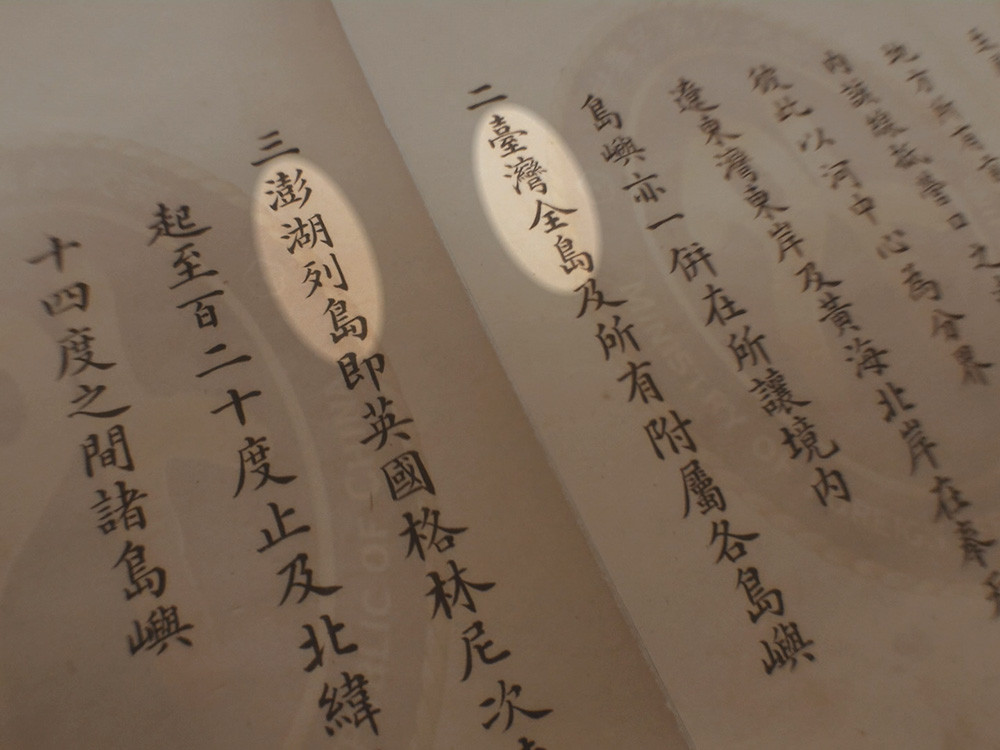 地方所有
內該線抵營口之
彼此以河中心為分界
遼東灣東岸及黃海北岸在奉
島嶼亦一併在所讓境內
二臺灣全島及所有附屬各島嶼
三澎湖列島即英國格林尼次
起至百二十度止及北緯
十四度之間諸島嶼
REPUBLIC OF CHINA
MINISTRY OF